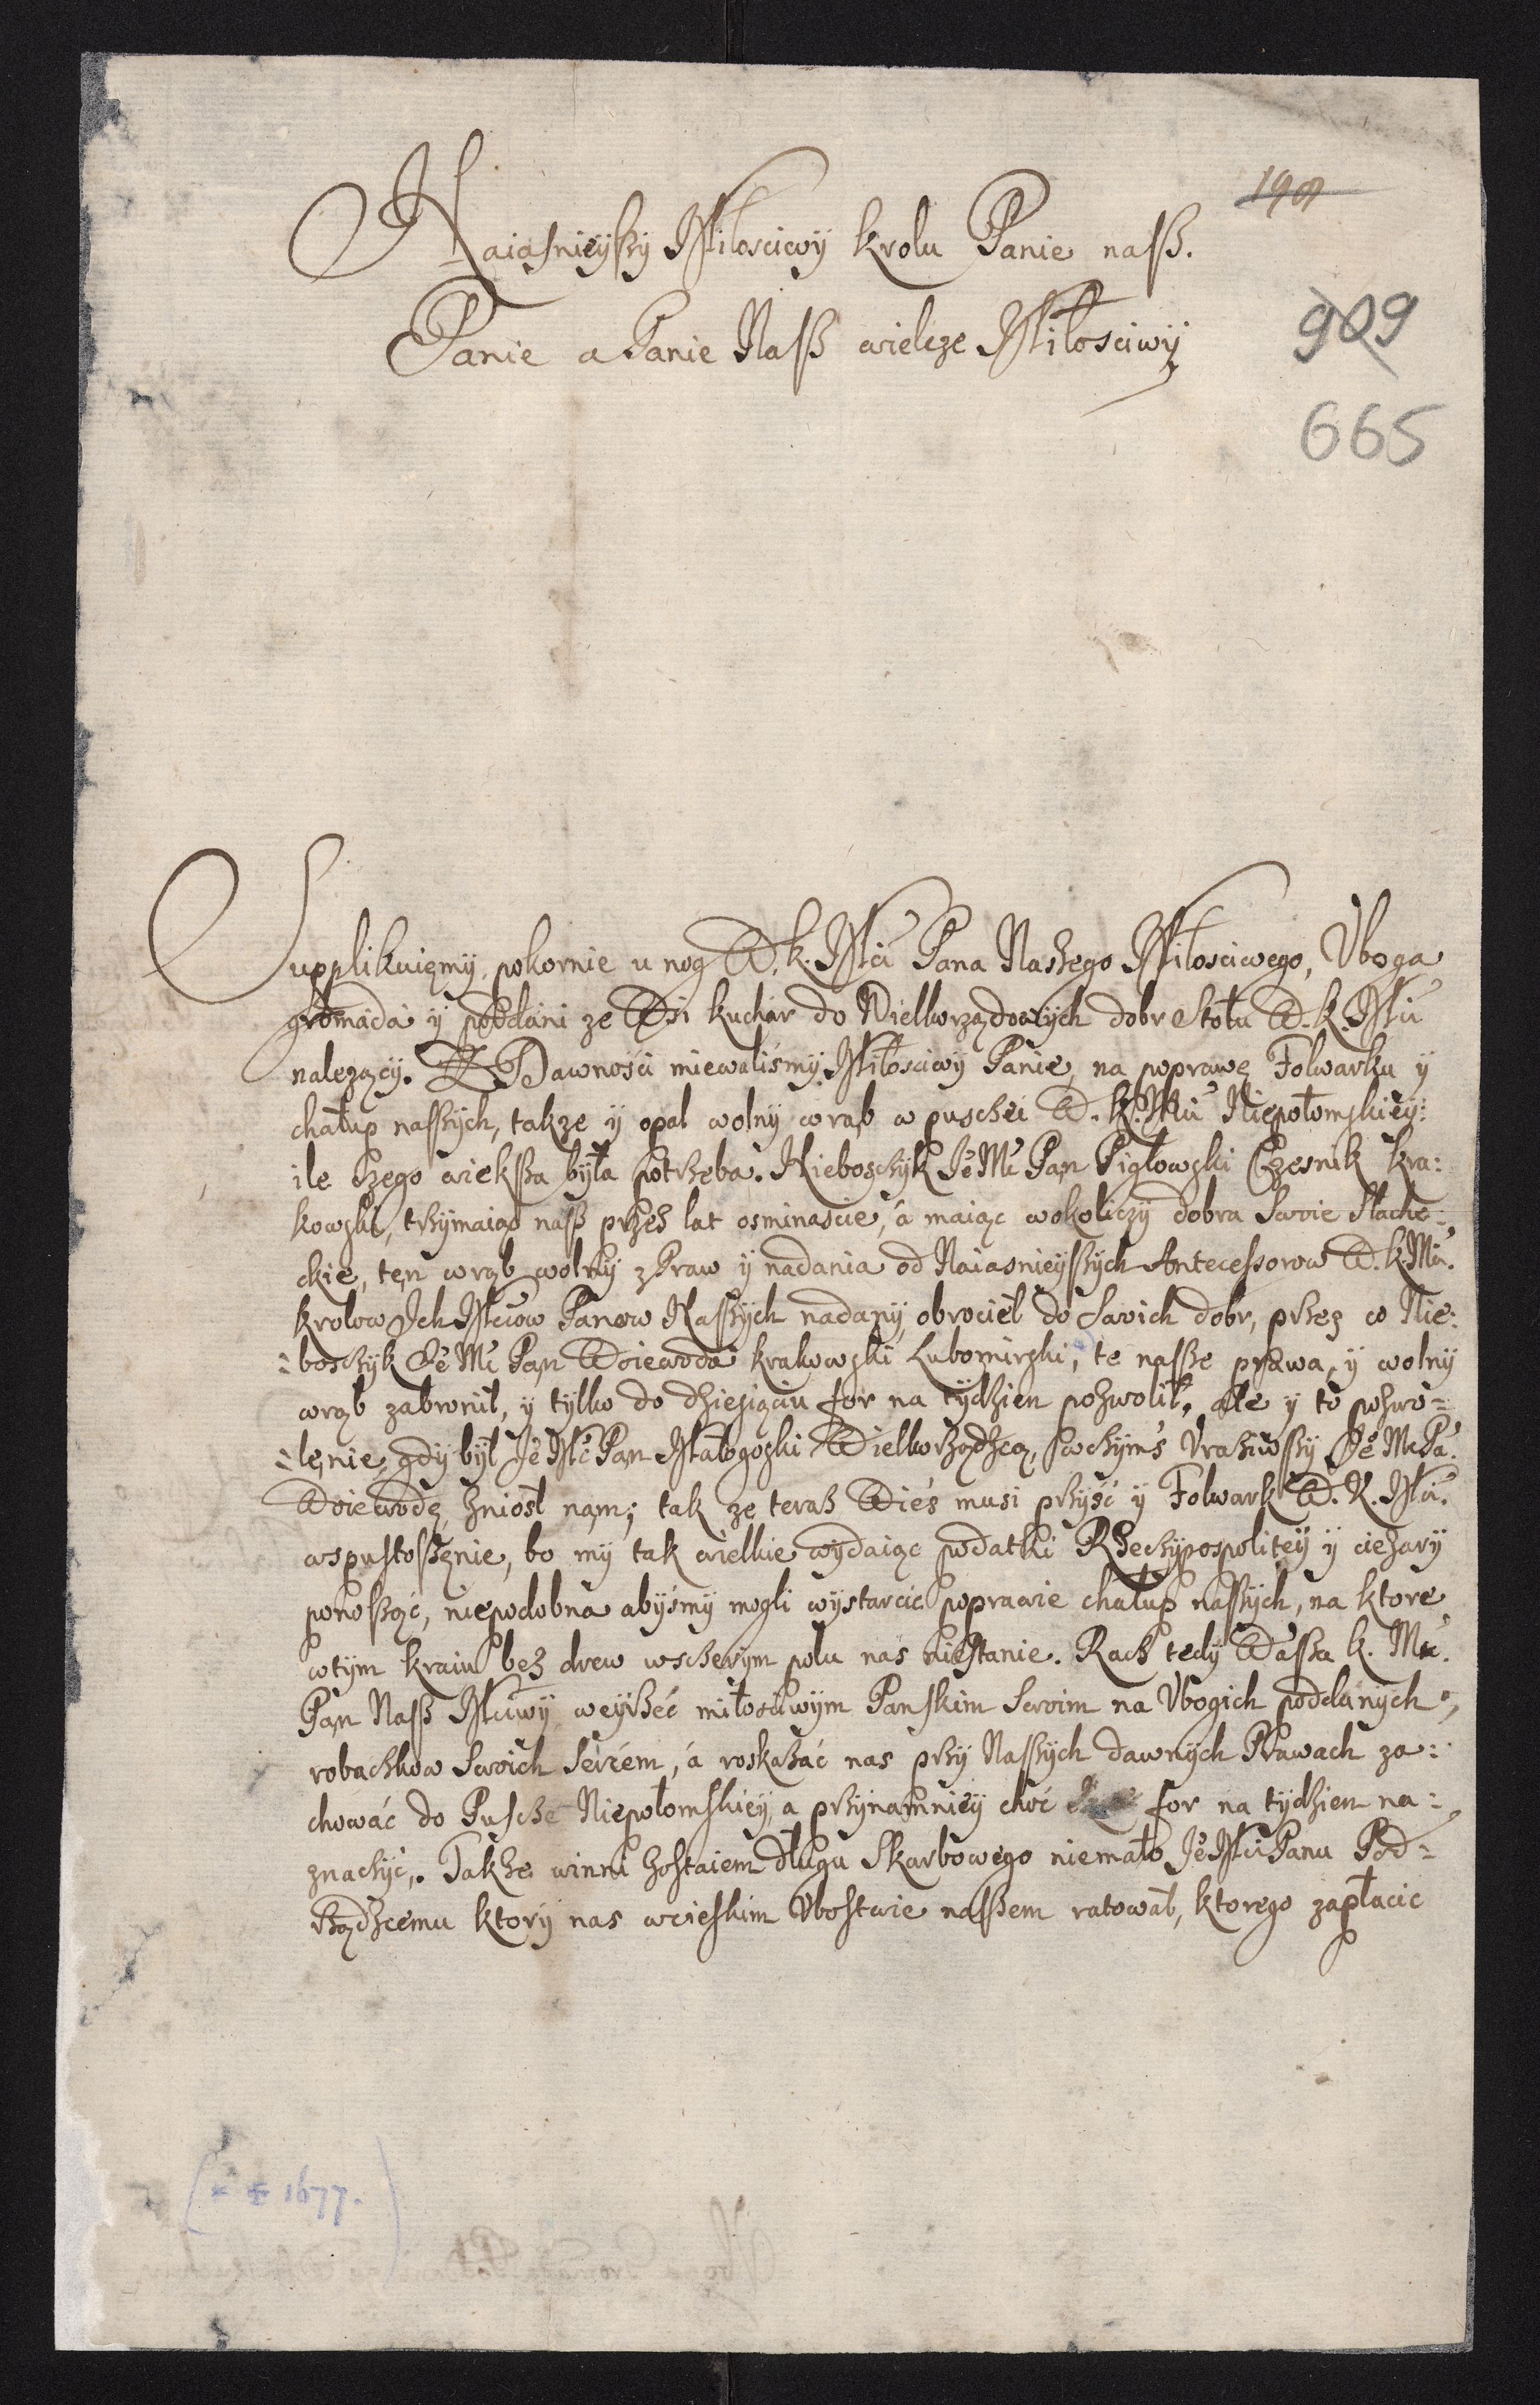 190
Naiasnieyßy Miłosciwy krolu Panie naſß.
909
Panie a Panie Naſß wielcze Miłosciwy
665
Supplikuięmy pokornie u nog W. k. Mści Pana Naszego Miłosciwego, Vboga
gromada y poddani ze Wsi kuchar do Wielkorządowych dobr stołu W. k. Mśći
nalezący. Z Dawnośći miewaliśmy Miłosciwy Panie, na poprawę Folwarku y
chałup naſßych, takze y opał wolny wrąb w puschći W. K. Mśći Niepołomskiey:
ile czego wiekßa była potrzeba. Nieboschyk Je Mć Pan Pigłowski Czesnik kra:
kowski, trzymaiąc naß przez lat osminascie, á maiąc w okoliczy dobra swoie slache:
ckie, ten wrąb wolny z Praw y nadania od Naiasnieyſßych Antecessorow W. k. Mśći.
krolow Ich Mściow Panow Naſßych nadany, obrocieł do swich dobr, przez co Nie:
:boschyk Je Mć Pan Woiewoda krakowski Lubomirski, te naſße prawa, y wolny
wrąb zabronił, y tylko do dziesiąciu for na tydzien pozwolił, ale y to pozwo=
:lęnie, gdy był Je Mć Pan Małogoski Wielkorządzcą, w czyms Vraziwßy Je Mć Pa.
Woiewodę, zniosł nam; tak ze teraz Wieś musi przyść y Folwark W. K. Mśći.
w spustoſßenie, bo my tak wielkie wydaiąc podatki Rzeczypospolitey y ciezary
ponoſßąc, niepodobna abyśmy mogli wystarcic poprawie chałup naſßych, na ktore
w tym kraiu bez drew w sczerym polu nas niestanie. Racz tedy Waſßa k. Mść.
Pan Naſß Mściwy weyrzeć miłosciwym Panskim swoim na Vbogich poddanych,
robaczkow swoich sercem, á roskazać nas przy Naſßych dawnych Prawach za:
chować do Puscze Niepołomskiey, a przynamniey choć for na tydzien na:
znaczyć. Takze winni zostaiem długu Skarbowego niemało Je Mści Panu Pod=
rządzcemu ktory nas w cieskim Vbostwie naſßem ratował, ktorego zapłacic
(* ± 1677.)